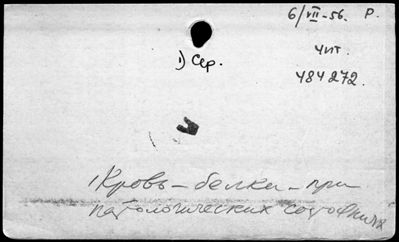 6/VII-56. Р.
1) Сер.
Чит.
484272.
1) Кровь - белки - при
патологических состояниях